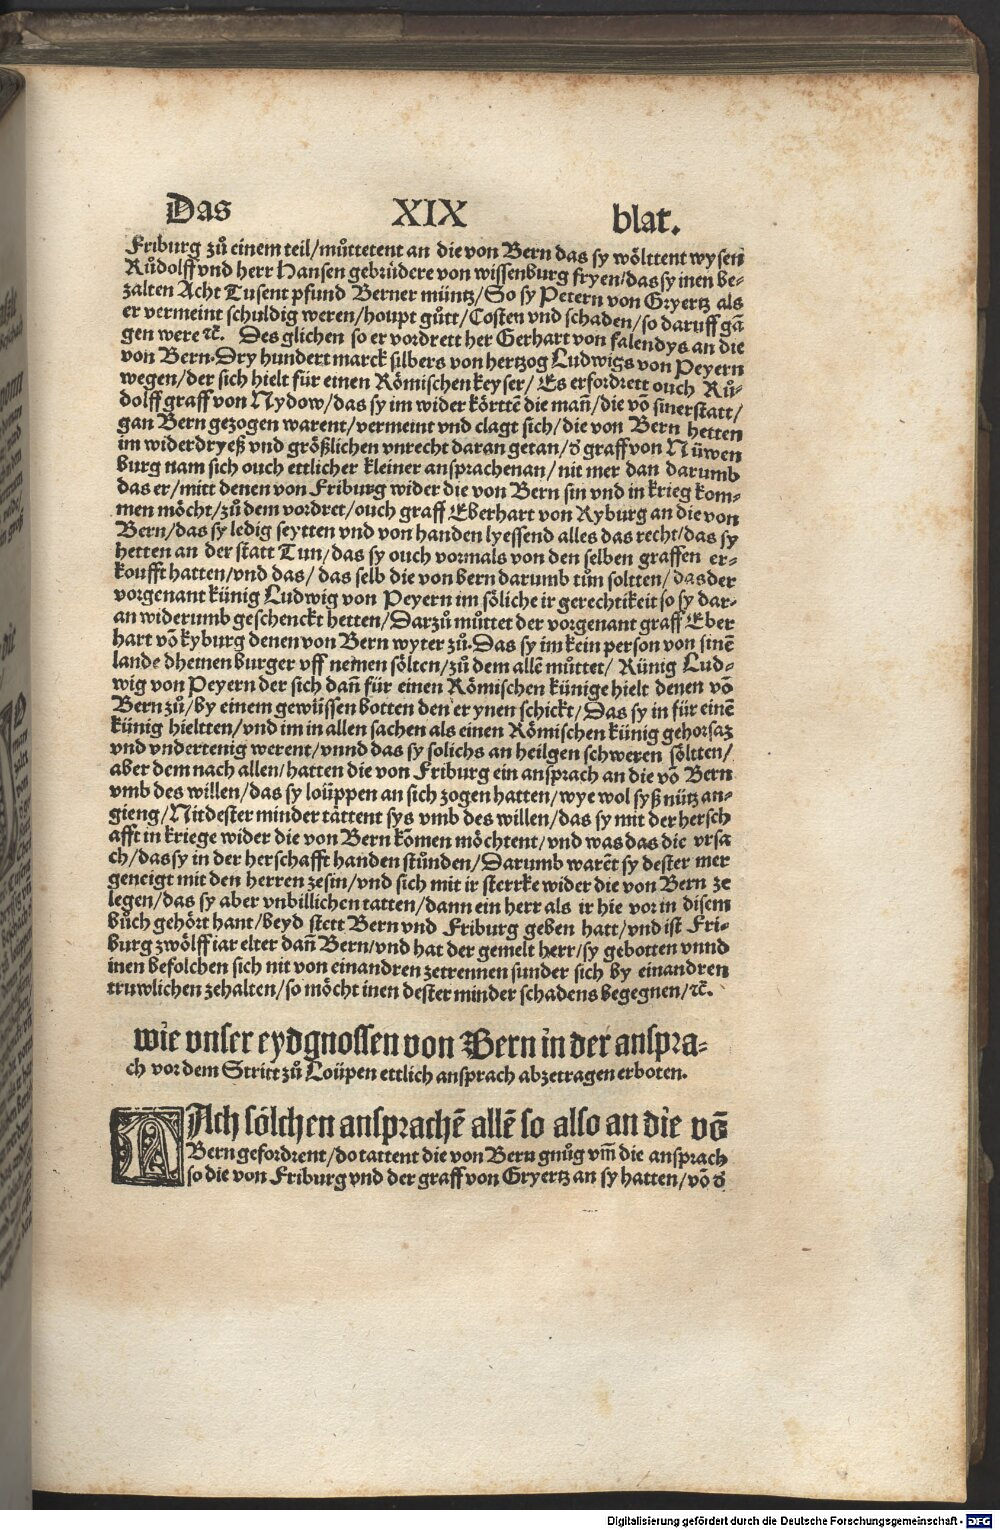 Das XIX blat.
Friburg zů einem teil/můttetent an die von Bern das sy wölttent wysen
Růdolff vnd herr Hansen gebrüdere von wissenburg fryen/das sy inen be-
zalten Acht Tusent pfund Berner müntz/So sy Petern von Gryertz als
er vermeint schuldig weren/houpt gůtt/Costen vnd schaden/so daruff gā
gen were ꝛc̄. Des glichen so er vordrett her Gerhart von falendys an die
von Bern. Dry hundert marck silbers von hertzog Ludwigs von Peyern
wegen/der sich hielt für einen Römischen keyser/ Es erfordrett ouch Rů-
dolff graff von Nydow/das sy im wider körttē die mañ/die vō siner statt/
gan Bern gezogen warent/vermeint vnd clagt sich/die von Bern hetten
im widerdryeß vnd größlichen vnrecht daran getan/ð graff von Nüwen
burg nam sich ouch ettlicher kleiner ansprachen an/nit mer dan darumb
das er/mitt denen von Friburg wider die von Bern sin vnd in krieg kom-
men möcht/zů dem vordret/ouch graff Eberhart von Kyburg an die von
Bern/das sy ledig seytten vnd von handen lyessend alles das recht/das sy
hetten an der statt Tun/das sy ouch vormals von den selben graffen er-
koufft hatten/vnd das/ das selb die von bern darumb tůn soltten/das der
vorgenant künig Ludwig von Peyern im söliche ir gerechtikeit so sy dar-
an widerumb geschenckt hetten/Darzů můttet der vorgenant graff Eber
hart vō kyburg denen von Bern wyter zů. Das sy im kein person von sinē
lande dheinen burger vff nemen sölten/zů dem allē můttet/ Künig Lud-
wig von Peyern der sich dañ für einen Römischen künige hielt denen vō
Bern zů/by einem gewüssen botten den er ynen schickt/Das sy in für einē
künig hieltten/vnd im in allen sachen als einen Römischen künig gehorsaz
vnd vndertenig werent/vnnd das sy solichs an heilgen schweren söltten/
aber dem nach allen/hatten die von Friburg ein ansprach an die vō Bern
vmb des willen/das sy loüppen an sich zogen hatten/wye wol syß nütz an-
gieng/Nit dester minder tättent sys vmb des willen/das sy mit der hersch
afft in kriege wider die von Bern kōmen möchtent/vnd was das die vrsa
ch/das sy in der herschafft handen stůnden/Darumb warēt sy dester mer
geneigt mit den herren ze sin/vnd sich mit ir sterrke wider die von Bern ze
legen/das sy aber vnbillichen tatten/dann ein herr als ir hie vor in disem
bůch gehört hant/beyd stett Bern vnd Friburg geben hatt/vnd ist Fri-
burg zwölff iar elter dañ Bern/vnd hat der gemelt herr/sy gebotten vnnd
inen befolchen sich nit von einandren zetrennen sunder sich by einandren
truwlichen zehalten/so möcht inen dester minder schadens begegnen/ꝛc̄.
wie vnser eydgnossen von Bern in der anspra-
ch vor dem Stritt zů Loüpen ettlich ansprach abzetragen erboten.
NAch sölchen ansprachē allē so also an die vō
Bern gefordrent/do tattent die von Bern gnůg vm̄ die ansprach
so die von Friburg vnd der graff von Gryertz an sy hatten/vō ð
Digitalisierung gefördert durch die Deutsche Forschungsgemeinschaft - DFG